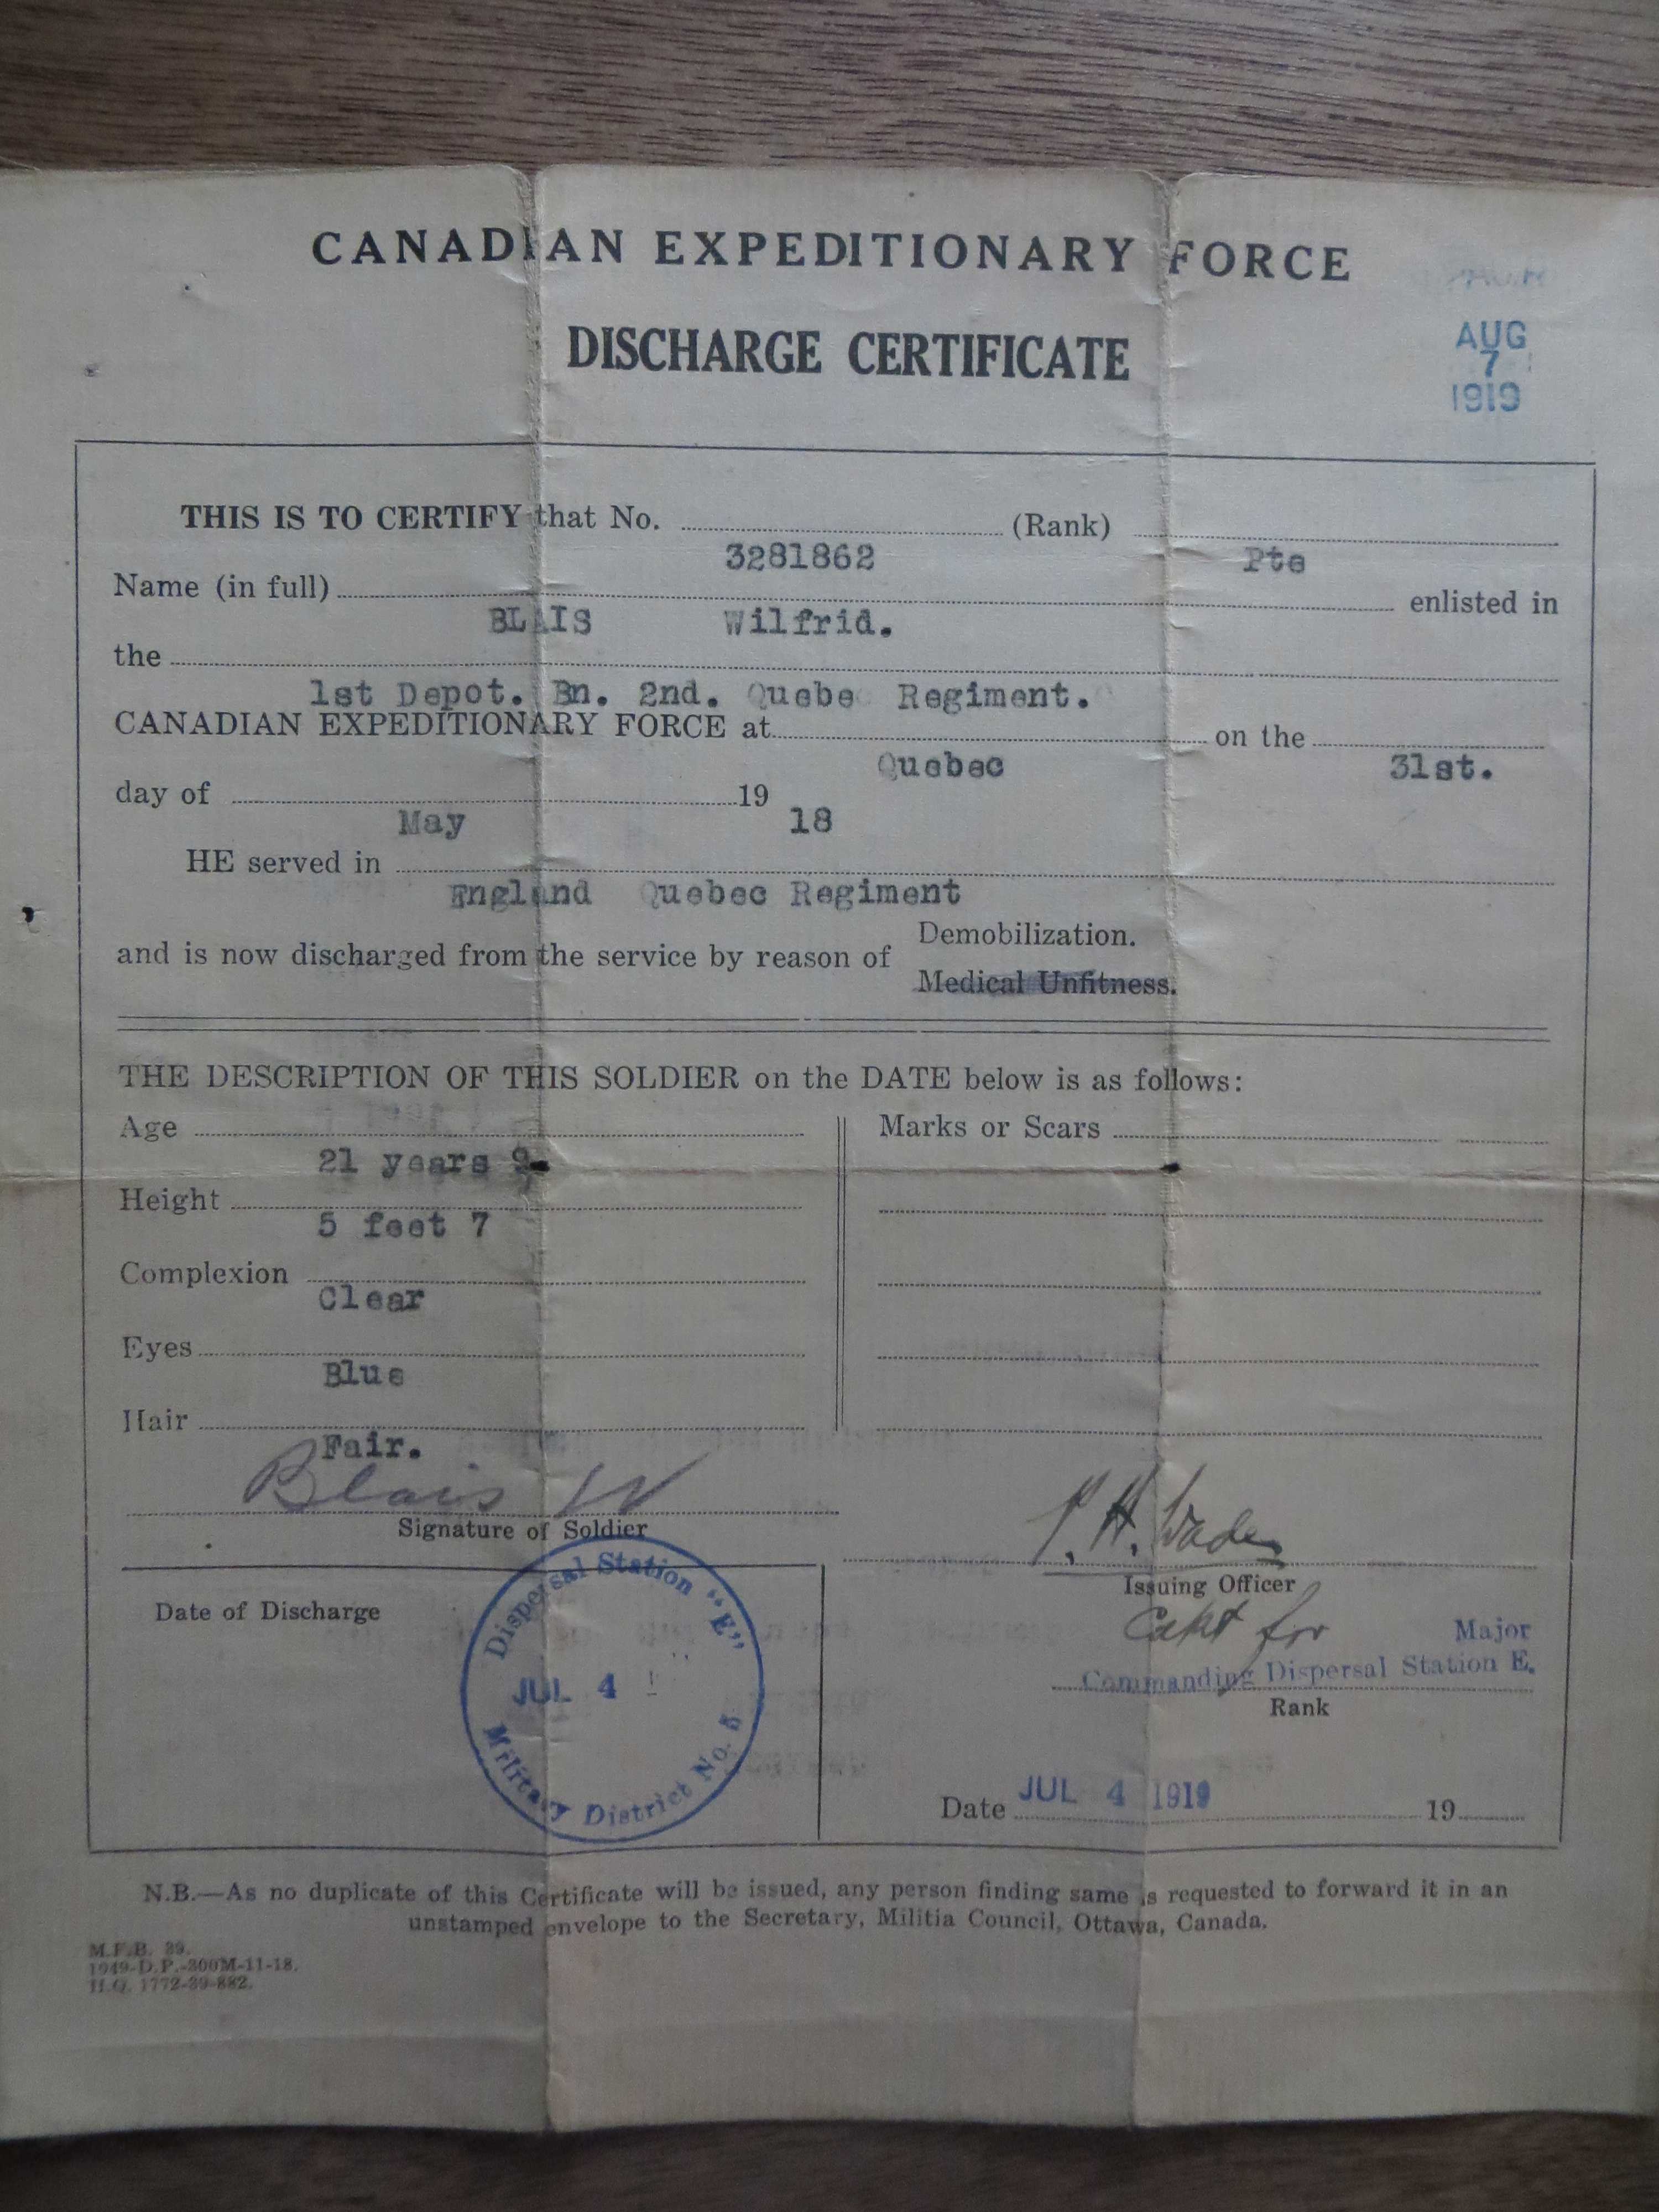 CANADIAN EXPEDITIONARY FORCE
DISCHARGE CERTIFICATE
AUG
7
1919
THIS IS TO CERTIFY that No. (Rank)
3281862 Pte
Name (in full) enlisted in
BLAIS Wilfrid.
the
1st Depot. Bn. 2nd. Quebec Regiment.
CANADIAN EXPEDITIONARY FORCE at on the
Quebec 31st.
day of 19
May 18
HE served in
England Quebec Regiment
and is now discharged from the service by reason of Demobilization.
Medical Unfitness.
THE DESCRIPTION OF THIS SOLDIER on the DATE below is as follows:
Age Marks or Scars
21 years 9
Height
5 feet 7
Complexion
Clear
Eyes
Blue
Hair
Fair.
Blais W
Signature of Soldier
Issuing Officer
Capt for Major
Commanding Dispersal Station E.
Rank
Date of Discharge
Dispersal Station "E"
JUL 4
Military District No. 5
Date JUL 4 1919 19
N.B.—As no duplicate of this Certificate will be issued, any person finding same is requested to forward it in an
unstamped envelope to the Secretary, Militia Council, Ottawa, Canada.
M.F.B. 39.
1949-D.P.-300M-11-18.
H.Q. 1772-39-882.